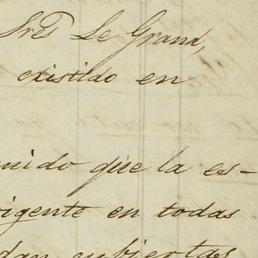 Sres Le Grand,
existido en
nido que la es-
igente en todas
dan cubiertas